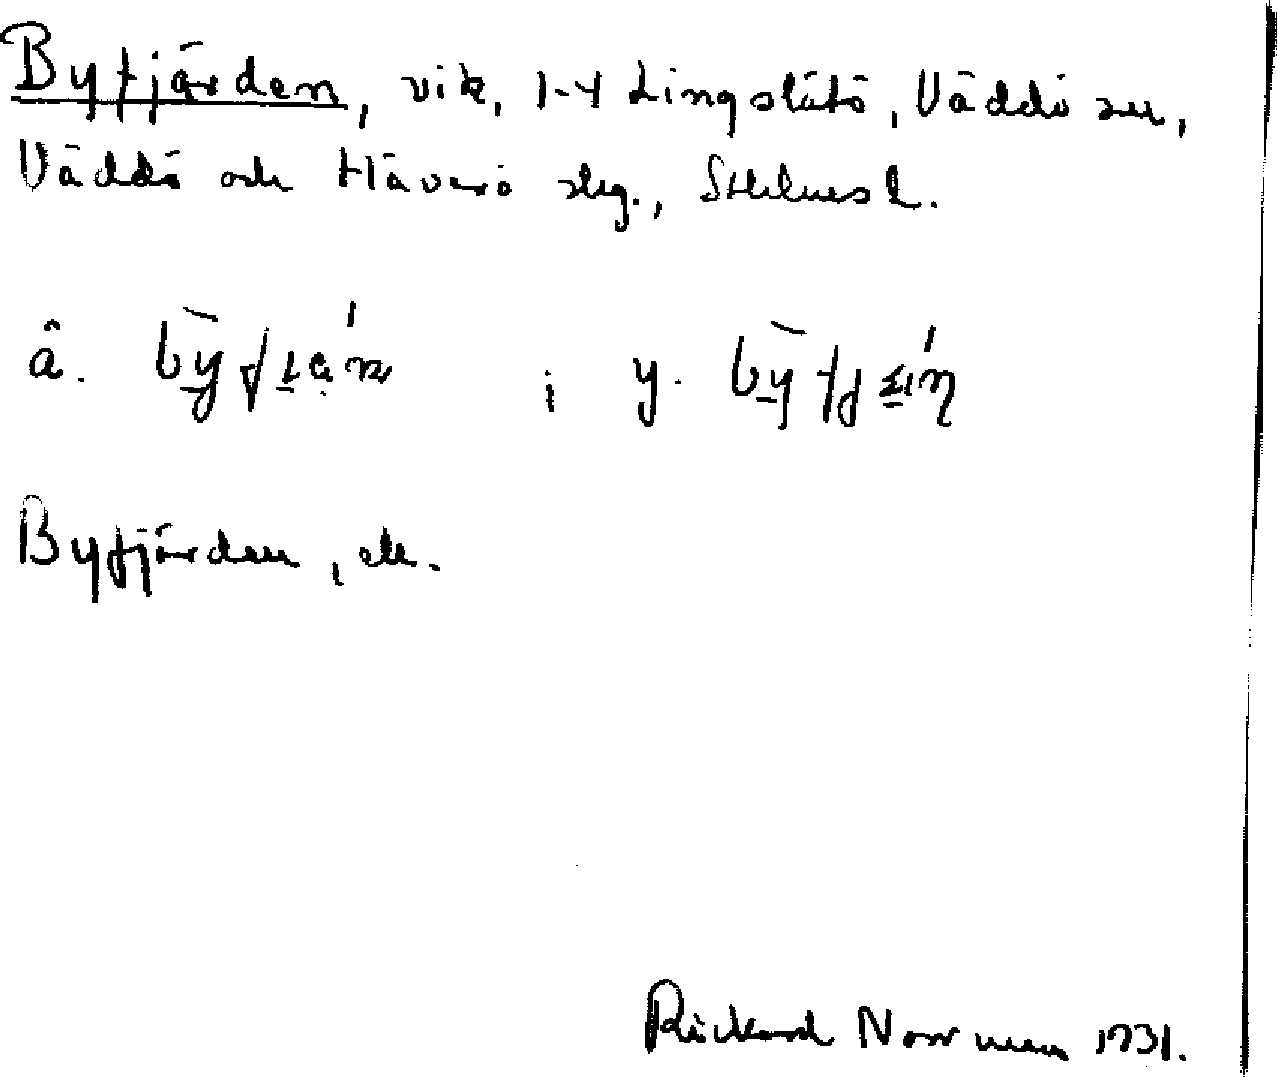 Byfjärden, vik, 1-4 Lingslätö, Väddö sn,
Väddö och Häverö skg., Sthlms l.
â. ; y.
Byfjärden, etc.
Rickard Norrman 1931.